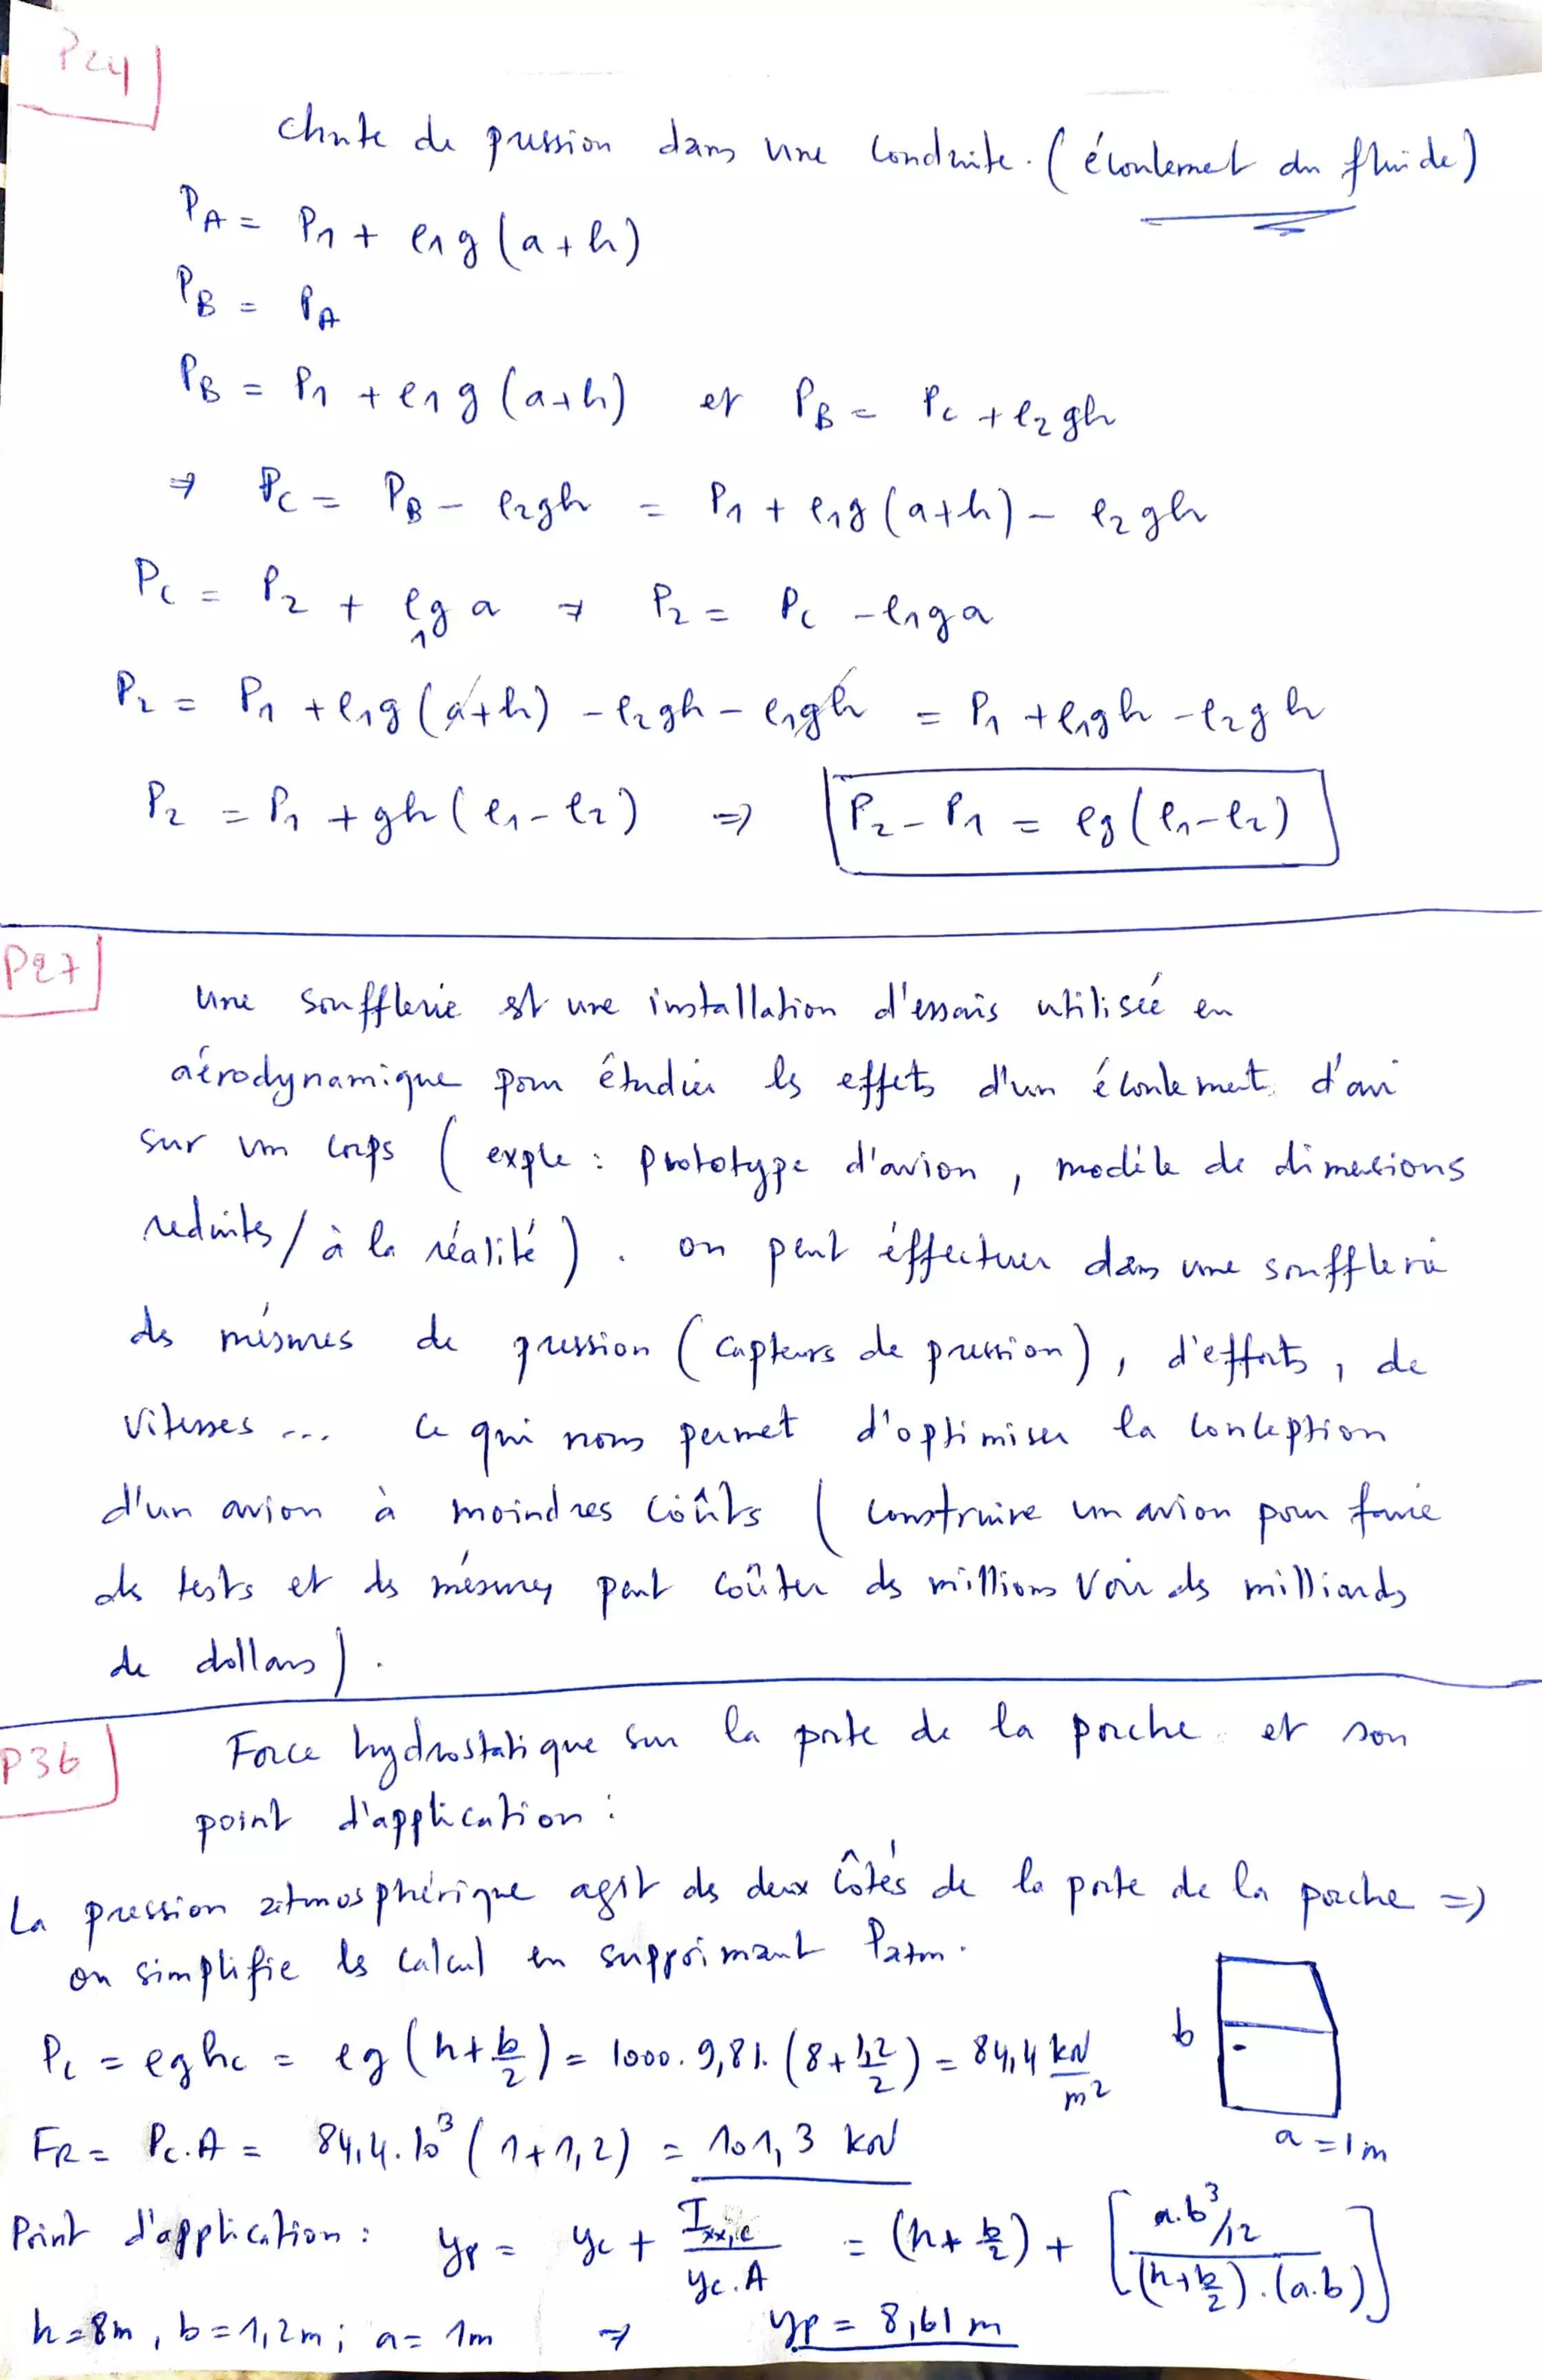 P24
Chute de pression dans une conduite. (écoulement du fluide)
P_A = P_1 + ρ_1 g (a + h)
P_B = P_A
P_B = P_1 + ρ_1 g (a+h) et P_B = P_C + ρ_2 gh
⇒ P_C = P_B - ρ_2gh = P_1 + ρ_1g (a+h) - ρ_2 gh
P_C = P_2 + ρ_1 g a ⇒ P_2 = P_C - ρ_1ga
P_2 = P_1 + ρ_1g (a+h) - ρ_2gh - ρ_1gh = P_1 + ρ_1gh - ρ_2gh
P_2 = P_1 + gh (ρ_1 - ρ_2) ⇒ P_2 - P_1 = ρg (ρ_1 - ρ_2)
P27
Une soufflerie est une installation d'essais utiliseé en
aérodynamique pour étudier les effets d'un écoulement d'air
sur un corps ( exple : prototype d'avion, modèle de dimensions
reduites / à la réalité ). on peut éffectuer dans une soufflerie
des mésures de pression (capteurs de pression), d'efforts, de
vitesses ... ce qui nous permet d'optimiser la conception
d'un avion à moindres côûts ( construire un avion pour faire
des tests et des mésures peut coûter des millions voir des milliards
de dollars ).
P36
Force hydrostatique sur la porte de la porche et son
point d'application :
La pression atmosphérique agit des deux côtés de la porte de la porche ⇒
on simplifie les calcul en supprimant Patm.
P_C = ρghc = ρg (h + b/2) = 1000. 9,81. (8 + 1,2/2) = 84,4 kN/m²
b
F_R = P_C.A = 84,4.10³ (1+1,2) = 101,3 kN
a = 1m
Point d'application : y_P = y_C + I_xx,c / y_C.A = (h + b/2) + [ a.b³/12 / (h+b/2).(a.b) ]
h = 8m, b = 1,2m ; a = 1m ⇒ y_P = 8,61 m